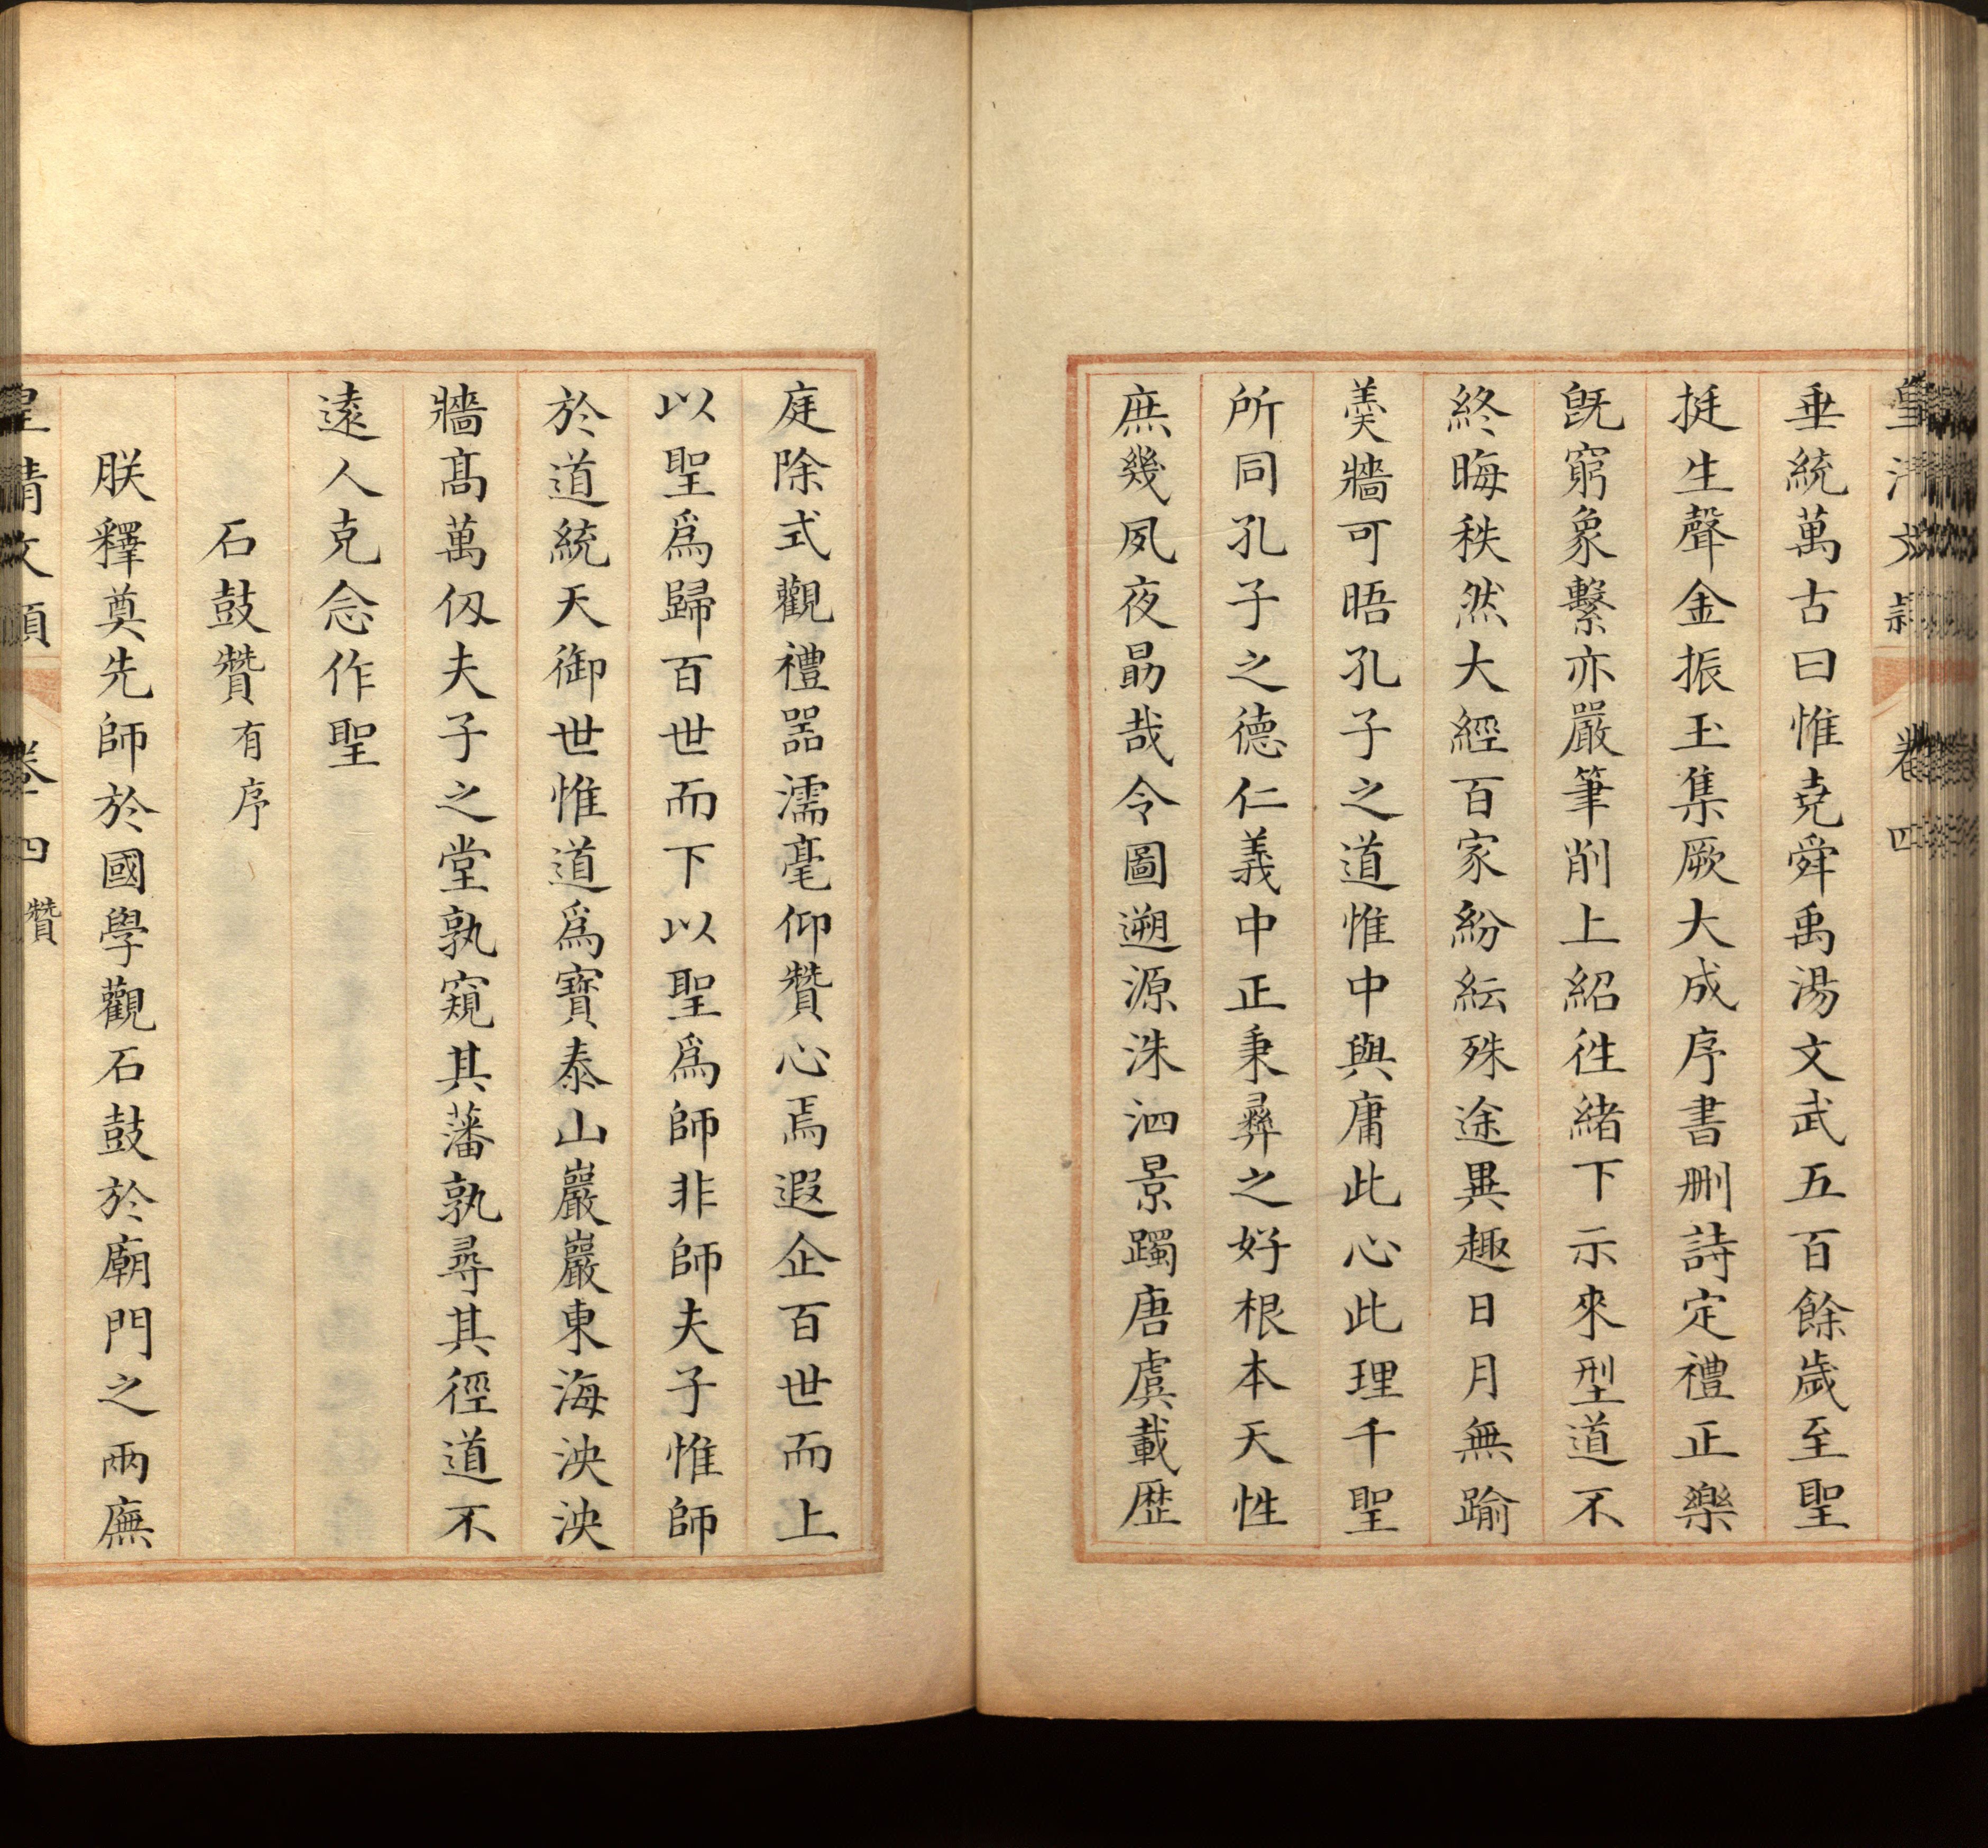 皇清文穎 卷四
垂統萬古曰惟堯舜禹湯文武五百餘歲至聖
挺生聲金振玉集厥大成序書刪詩定禮正樂
旣窮象繫亦嚴筆削上紹徃緒下示來型道不
終晦秩然大經百家紛紜殊途異趣日月無踰
羮牆可晤孔子之道惟中與庸此心此理千聖
所同孔子之德仁義中正秉彞之好根本天性
庶幾夙夜勗哉令圖遡源洙泗景躅唐虞載歷
庭除式觀禮器濡毫仰贊心焉遐企百世而上
以聖爲歸百世而下以聖爲師非師夫子惟師
於道統天御世惟道爲寶泰山巖巖東海泱泱
牆高萬仭夫子之堂孰窺其藩孰尋其徑道不
遠人克念作聖
石鼓贊有序
朕釋奠先師於國學觀石鼓於廟門之兩廡
皇清文穎 卷四贊